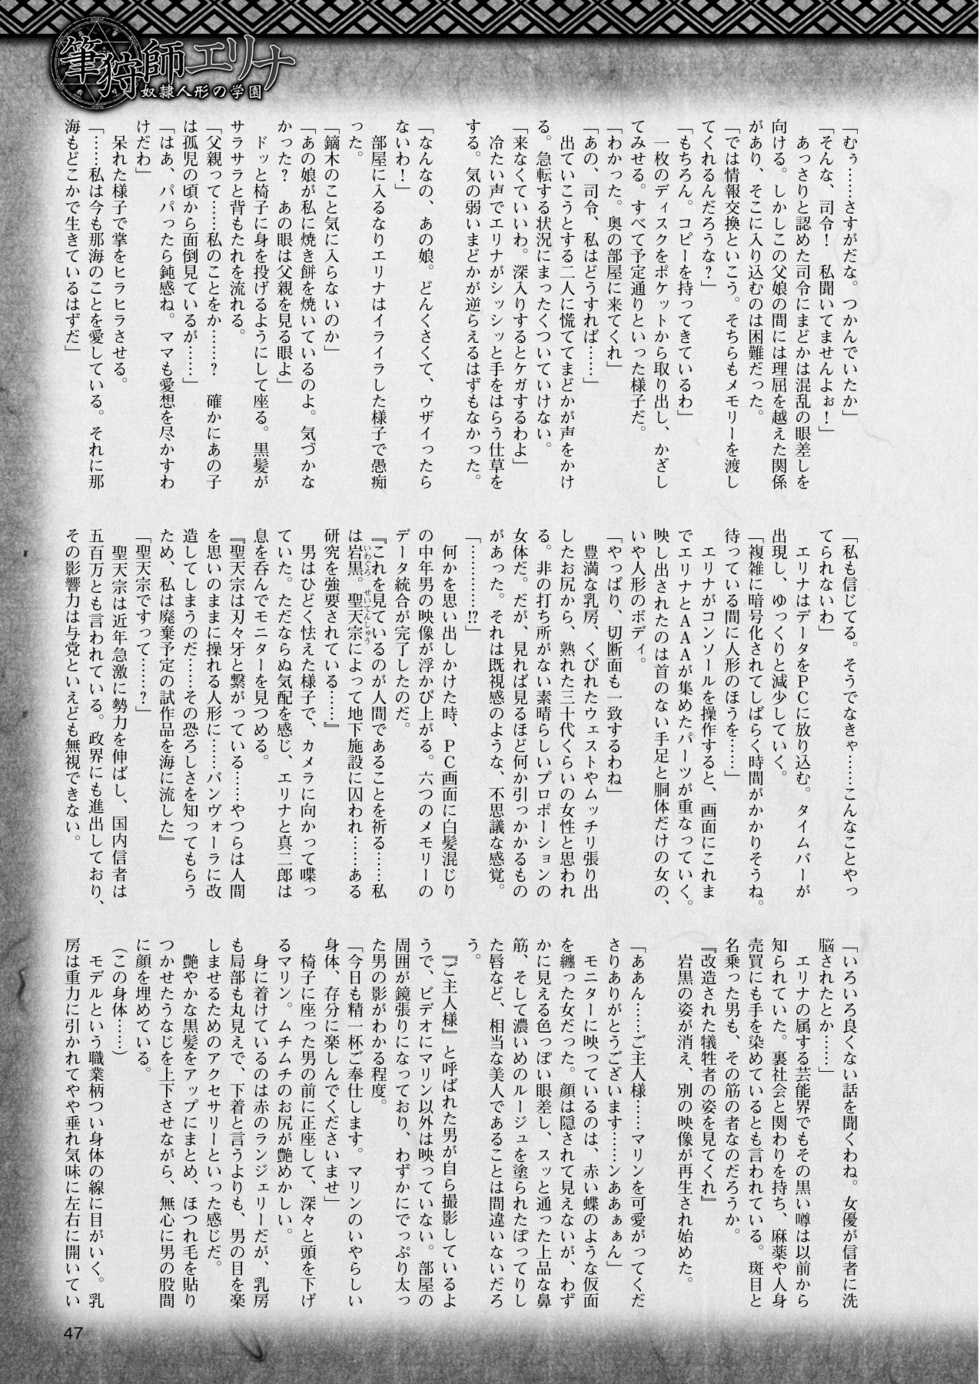 筆狩師エリナ
奴隷人形の学園
「むぅ……さすがだな。つかんでいたか」
「そんな、司令！　私聞いてませんよぉ！」
　あっさりと認めた司令にまどかは混乱の眼差しを
向ける。しかしこの父娘の間には理屈を越えた関係
があり、そこに入り込むのは困難だった。
「では情報交換といこう。そちらもメモリーを渡し
てくれるんだろうな？」
「もちろん。コピーを持ってきているわ」
　一枚のディスクをポケットから取り出し、かざし
てみせる。すべて予定通りといった様子だ。
「わかった。奥の部屋に来てくれ」
「あの、司令、私はどうすれば……」
　出ていこうとする二人に慌ててまどかが声をかけ
る。急転する状況にまったくついていけない。
「来なくていいわ。深入りするとケガするわよ」
　冷たい声でエリナがシッシッと手をはらう仕草を
する。気の弱いまどかが逆らえるはずもなかった。
「なんなの、あの娘。どんくさくて、ウザイったら
ないわ！」
　部屋に入るなりエリナはイライラした様子で愚痴
った。
「鏑木のこと気に入らないのか」
「あの娘が私に焼き餅を焼いているのよ。気づかな
かった？　あの眼は父親を見る眼よ」
　ドッと椅子に身を投げるようにして座る。黒髪が
サラサラと背もたれを流れる。
「父親って……私のことをか……？　確かにあの子
は孤児の頃から面倒見ているが……」
「はあ、パパったら鈍感ね。ママも愛想を尽かすわ
けだわ」
　呆れた様子で掌をヒラヒラさせる。
「……私は今も那海のことを愛している。それに那
海もどこかで生きているはずだ」
「私も信じてる。そうでなきゃ……こんなことやっ
てられないわ」
　エリナはデータをＰＣに放り込む。タイムバーが
出現し、ゆっくりと減少していく。
「複雑に暗号化されてしばらく時間がかかりそうね。
待っている間に人形のほうを……」
　エリナがコンソールを操作すると、画面にこれま
でエリナとＡＡＡが集めたパーツが重なっていく。
映し出されたのは首のない手足と胴体だけの女の、
いや人形のボディ。
「やっぱり、切断面も一致するわね」
　豊満な乳房、くびれたウェストやムッチリ張り出
したお尻から、熟れた三十代くらいの女性と思われ
る。非の打ち所がない素晴らしいプロポーションの
女体だ。だが、見れば見るほど何か引っかかるもの
があった。それは既視感のような、不思議な感覚。
「…………!?」
　何かを思い出しかけた時、ＰＣ画面に白髪混じり
の中年男の映像が浮かび上がる。六つのメモリーの
データ統合が完了したのだ。
『これを見ているのが人間であることを祈る……私
は岩黒。聖天宗によって地下施設に囚われ……ある
研究を強要されている……』
　男はひどく怯えた様子で、カメラに向かって喋っ
ていた。ただならぬ気配を感じ、エリナと真二郎は
息を呑んでモニターを見つめる。
『聖天宗は刃々牙と繋がっている……やつらは人間
を思いのままに操れる人形に……パンヴォーラに改
造してしまうのだ……その恐ろしさを知ってもらう
ため、私は廃棄予定の試作品を海に流した』
「聖天宗ですって……？」
　聖天宗は近年急激に勢力を伸ばし、国内信者は
五百万とも言われている。政界にも進出しており、
その影響力は与党といえども無視できない。
「いろいろ良くない話を聞くわね。女優が信者に洗
脳されたとか……」
　エリナの属する芸能界でもその黒い噂は以前から
知られていた。裏社会と関わりを持ち、麻薬や人身
売買にも手を染めているとも言われている。斑目と
名乗った男も、その筋の者なのだろうか。
『改造された犠牲者の姿を見てくれ』
　岩黒の姿が消え、別の映像が再生され始めた。
「ああん……ご主人様……マリンを可愛がってくだ
さりありがとうございます……ンああぁぁん」
　モニターに映っているのは、赤い蝶のような仮面
を纏った女だった。顔は隠されて見えないが、わず
かに見える色っぽい眼差し、スッと通った上品な鼻
筋、そして濃いめのルージュを塗られたぽってりし
た唇など、相当な美人であることは間違いないだろ
う。
『ご主人様』と呼ばれた男が自ら撮影しているよ
うで、ビデオにマリン以外は映っていない。部屋の
周囲が鏡張りになっており、わずかにでっぷり太っ
た男の影がわかる程度。
「今日も精一杯ご奉仕します。マリンのいやらしい
身体、存分に楽しんでくださいませ」
　椅子に座った男の前に正座して、深々と頭を下げ
るマリン。ムチムチのお尻が艶めかしい。
　身に着けているのは赤のランジェリーだが、乳房
も局部も丸見えで、下着と言うよりも、男の目を楽
しませるためのアクセサリーといった感じだ。
　艶やかな黒髪をアップにまとめ、ほつれ毛を貼り
つかせたうなじを上下させながら、無心に男の股間
に顔を埋めている。
（この身体……）
　モデルという職業柄つい身体の線に目がいく。乳
房は重力に引かれてやや垂れ気味に左右に開いてい
47